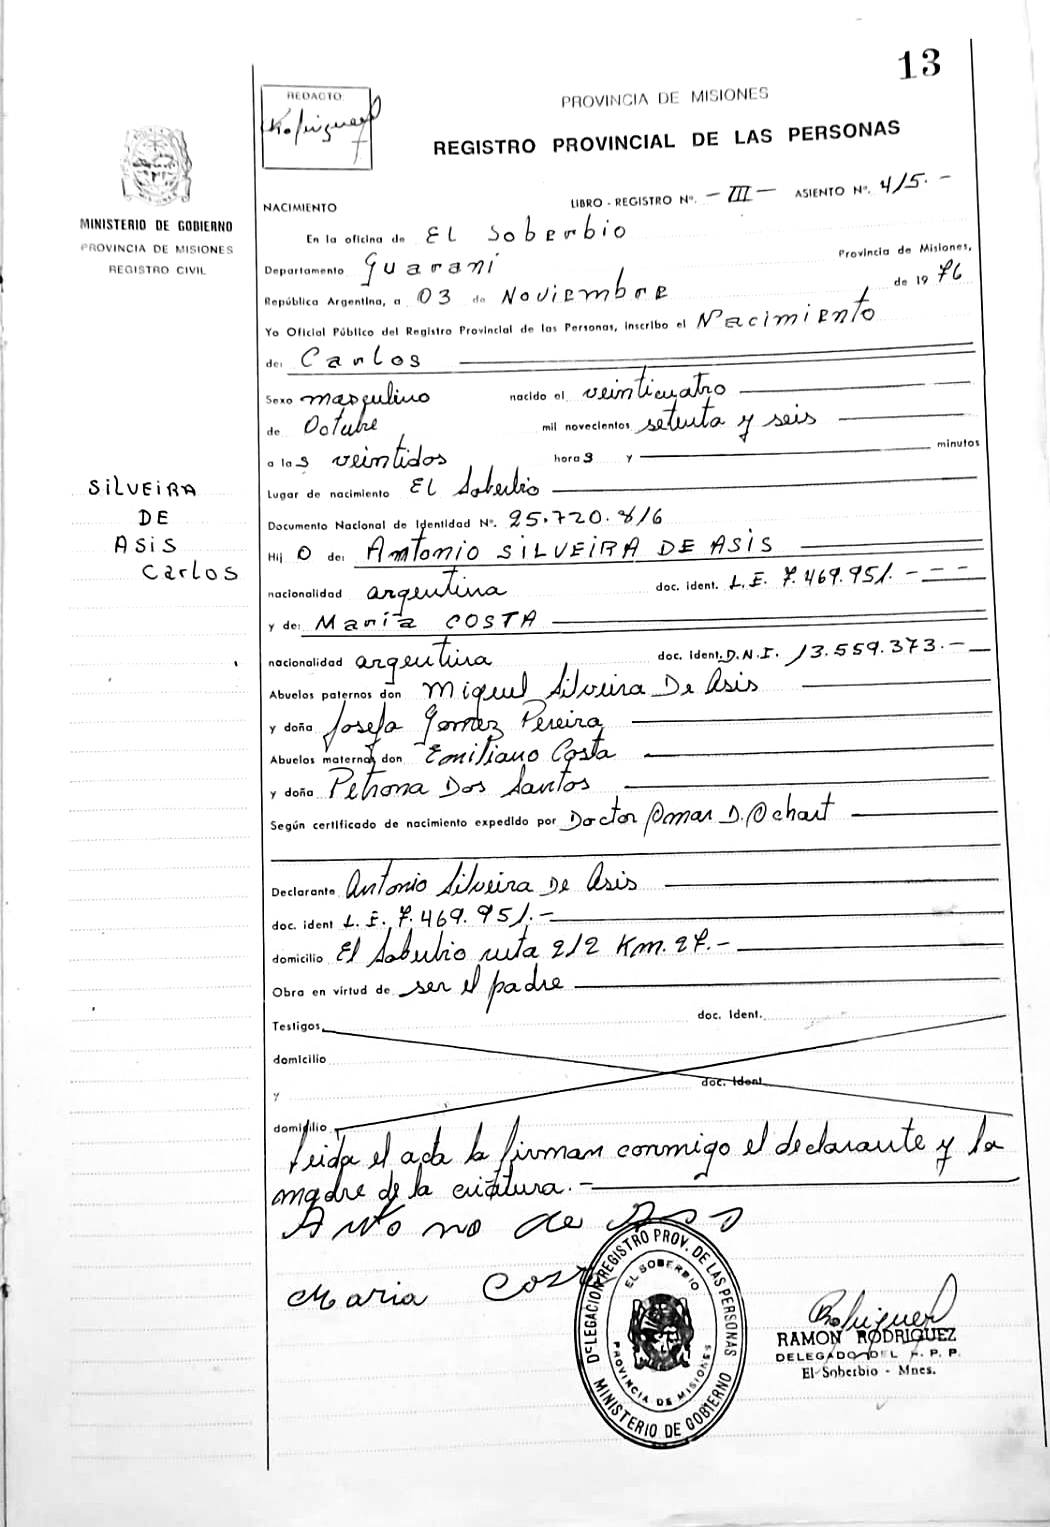 13
REDACTO:
Rodriguez
PROVINCIA DE MISIONES
REGISTRO PROVINCIAL DE LAS PERSONAS
MINISTERIO DE GOBIERNO
PROVINCIA DE MISIONES
REGISTRO CIVIL
NACIMIENTO
LIBRO - REGISTRO Nº. - III - ASIENTO Nº. 415.-
En la oficina de EL Soberbio
Departamento Guaraní Provincia de Misiones,
República Argentina, a 03 de Noviembre de 1976
Yo Oficial Público del Registro Provincial de las Personas, inscribo el Nacimiento
de: Carlos
Sexo masculino nacido el veinticuatro
de Octubre mil novecientos setenta y seis
a las veintidos horas y minutos
Lugar de nacimiento EL Soberbio
Documento Nacional de Identidad Nº. 25.720.816
SILVEIRA
DE
ASIS
Carlos
Hij O de: Antonio SILVEIRA DE ASIS
nacionalidad argentina doc. ident. L.E. 7.469.951.- - -
y de: María COSTA
nacionalidad argentina doc. ident. D.N.I. 13.559.373.-
Abuelos paternos don Miguel Silveira De Asis
y doña Josefa Gomez Pereira
Abuelos maternos don Emiliano Costa
y doña Petrona Dos Santos
Según certificado de nacimiento expedido por Doctor Omar D. Ochart
Declarante Antonio Silveira De Asis
doc. ident L.E. 7.469.951.-
domicilio El Soberbio ruta 212 Km. 27.-
Obra en virtud de ser el padre
Testigos doc. Ident.
domicilio
y doc. Ident
domicilio
Leida el acta la firman conmigo el declarante y la
madre de la criatura.-
Anto no de
Maria Costa
DELEGACION REGISTRO PROV. DE LAS PERSONAS
EL SOBERBIO
PROVINCIA DE MISIONES
MINISTERIO DE GOBIERNO
Rodriguez
RAMON RODRIGUEZ
DELEGADO DEL R. P. P.
El Soberbio - Mnes.